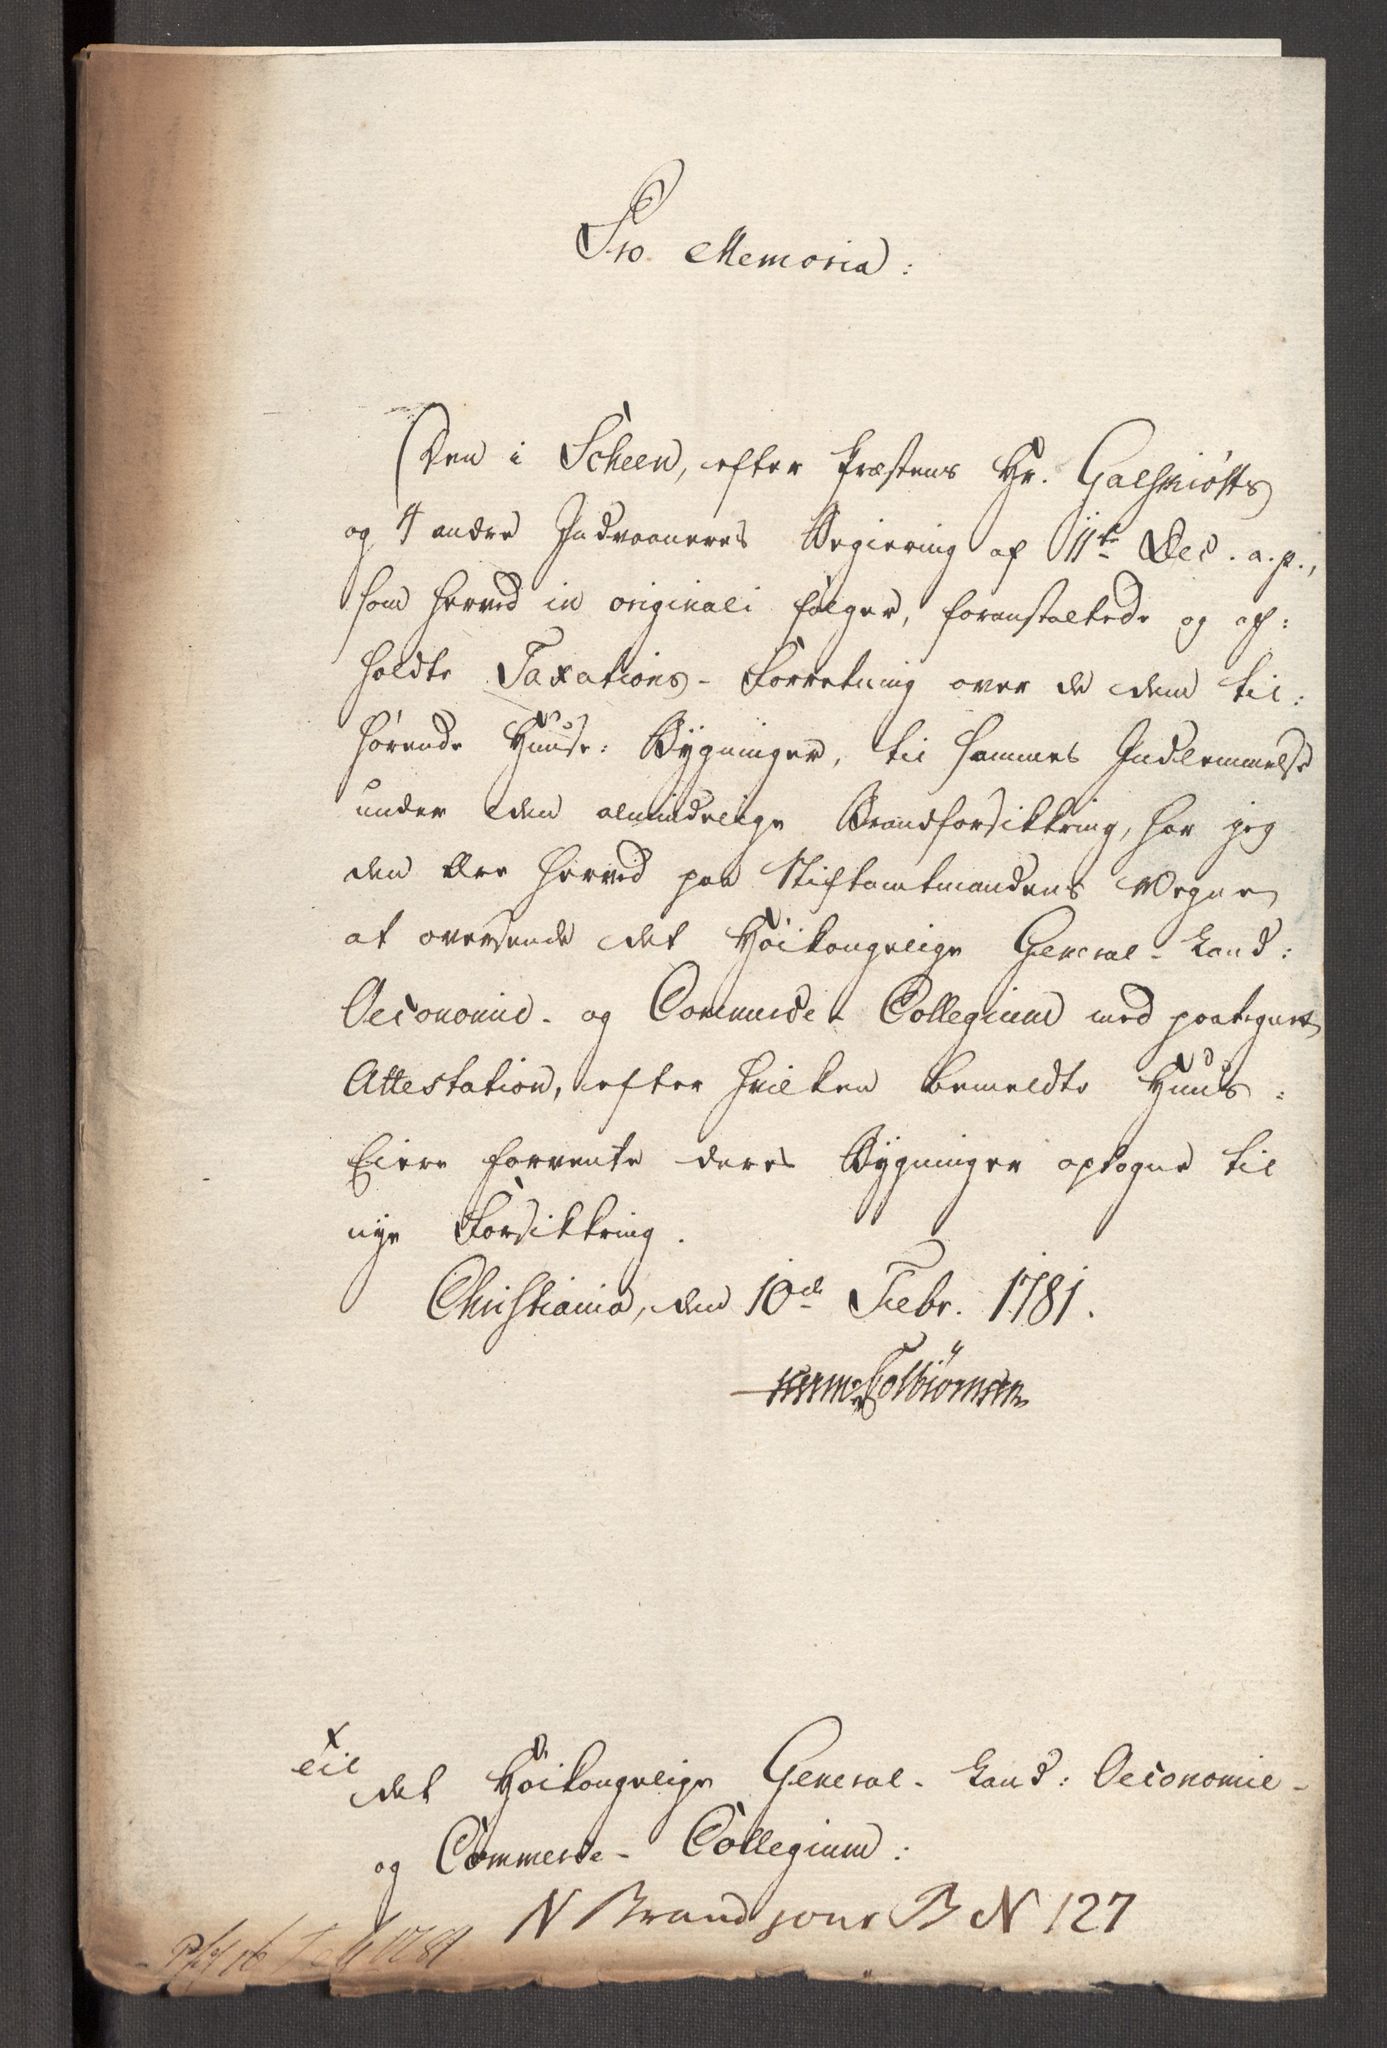 Pro Memoria:
Den i Scheen, efter Præstens Hr. Galschiøtts
og 4 andre Indvaaneres Begiering af 11te Dec. a. p.,
som herved in originali følger, foranstaltede og af:
holdte Taxations- Forretning over de dem til:
hørende Huuse: Bygninger, til sammes Indlemmelse
under den almindelige Brandforsikkring, har jeg
den Ære herved paa Stiftamtmandens Vegne
at oversende det Høikongelige General- Land:
Oeconomie- og Commerce- Collegium med paategnet
Attestation, efter hvilken bemeldte Huus:
Eiere forvente deres Bygninger optagne til
nye Forsikkring.
Christiania, den 10de Febr. 1781.
Colbiørnsen
Til
det Høikongelige General- Land: Oeconomie-
og Commerce- Collegium:
N Brand jour B N 127
16 Feb 1781